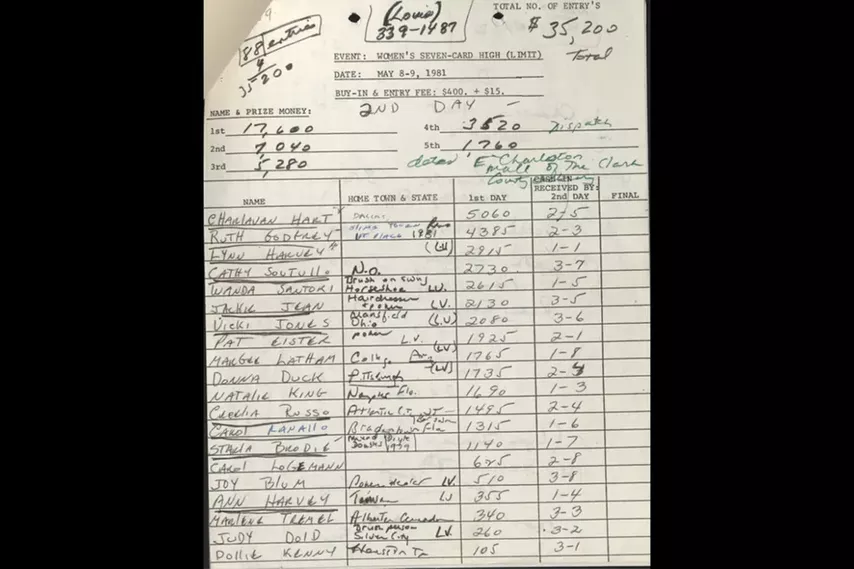 (Louis)
339-1487
TOTAL NO. OF ENTRY'S
$ 35,200
Total
88 entries
4
35200
EVENT: WOMEN'S SEVEN-CARD HIGH (LIMIT)
DATE: MAY 8-9, 1981
BUY-IN & ENTRY FEE: $400. + $15.
2ND DAY -
NAME & PRIZE MONEY:
1st 17,600
2nd 7,040
3rd 5,280
4th 3520 Dispatch
5th 1,760
E-Charleston
mall of the Clark
County
NAME HOME TOWN & STATE 1st DAY RECEIVED BY: 2nd DAY FINAL
CHARLAVAN HART 5060 2-5
RUTH GODFREY 1981 4385 2-3
LYNN HARVEY (LV) 2915 1-1
CATHY SOUTULLO N.O. 2730 3-7
WANDA SANTORI Horseshoe LV. 2615 1-5
JACKIE JEAN Hairdresser LV. 2130 3-5
VICKI JONES Mansfield Ohio (LV) 2080 3-6
PAT EISTER poker L.V. 1925 2-1
MARGEE LATHAM College (LV) 1765 1-8
DONNA DUCK Pittsburgh (LV) 1735 2-4
NATALIE KING Naples Fla. 1690 1-3
CECELIA RUSSO Atlantic City 1495 2-4
CAROL RANALLO Bradenton Fla 1315 1-6
STARLA BRODIE 1979 1140 1-7
CAROL LOGEMANN 625 2-8
JOY BLUM Poker dealer LV. 510 3-8
ANN HARVEY LV 355 1-4
MARLENE TREMEL Alberta 340 3-3
JUDY DOLD Silver City LV. 260 3-2
DOLLIE KENNY Houston Tx 105 3-1